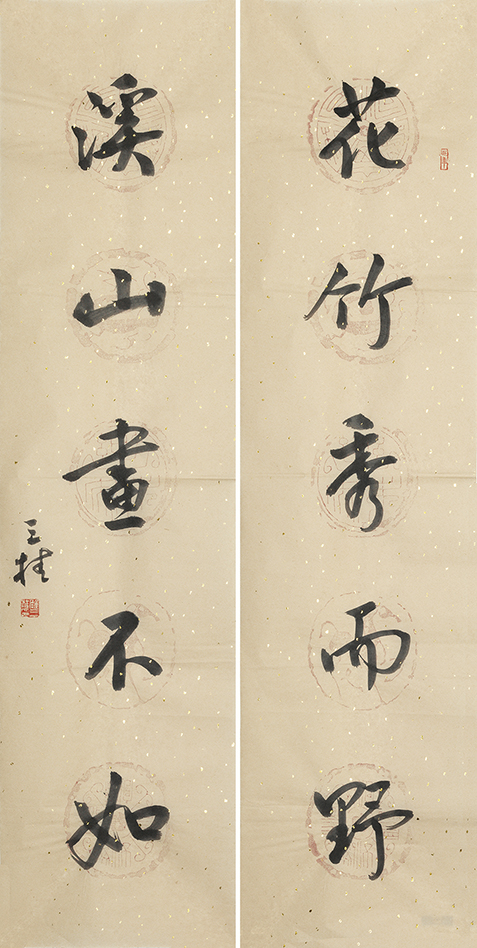 花竹秀而野
溪山畫不如